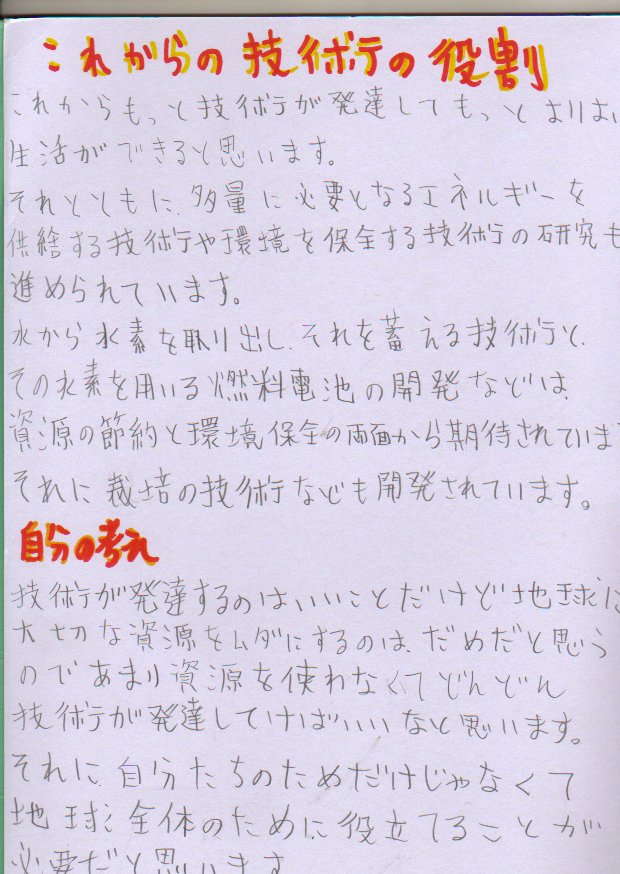 これからの技術の役割
これからもっと技術が発達してもっとよりよい
生活ができると思います。
それとともに、多量に必要となるエネルギーを
供給する技術や環境を保全する技術の研究も
進められています。
水から水素を取り出し、それを蓄える技術と、
その水素を用いる燃料電池の開発などは、
資源の節約と環境保全の両面から期待されていま
それに栽培の技術なども開発されています。
自分の考え
技術が発達するのはいいことだけど地球に
大切な資源をムダにするのは、だめだと思う
のであまり資源を使わなくてどんどん
技術が発達していけばいいなと思います。
それに、自分たちのためだけじゃなくて
地球全体のために役立てることが
必要だと思います